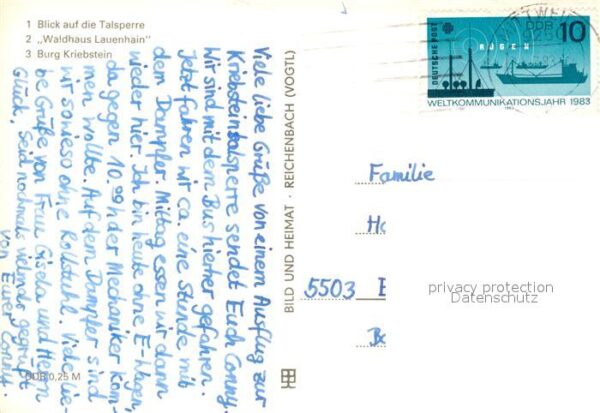 1 Blick auf die Talsperre
2 „Waldhaus Lauenhain"
3 Burg Kriebstein
Viele liebe Grüße von einem Ausflug zur
Kriebsteintalsperre sendet Euch Conny.
Wir sind mit dem Bus hierher gefahren.
Jetzt fahren wir ca. eine Stunde mit
dem Dampfer. Mittag essen wir dann
wieder hier. Ich bin heute ohne E-Wagen,
da gegen 10.00 h der Mechaniker kom-
men wollte. Auf dem Dampfer sind
wir sowieso ohne Rollstuhl. Viele lie-
be Grüße von Frau Gisela und Herrn
Glück, Seid nochmals vielmals gegrüßt
von Eurer Conny.
DDR 0,25 M
BILD UND HEIMAT · REICHENBACH (VOGTL)
DEUTSCHE POST
DDR
10
RÜGEN
WELTKOMMUNIKATIONSJAHR 1983
Familie
5503
privacy protection
Datenschutz